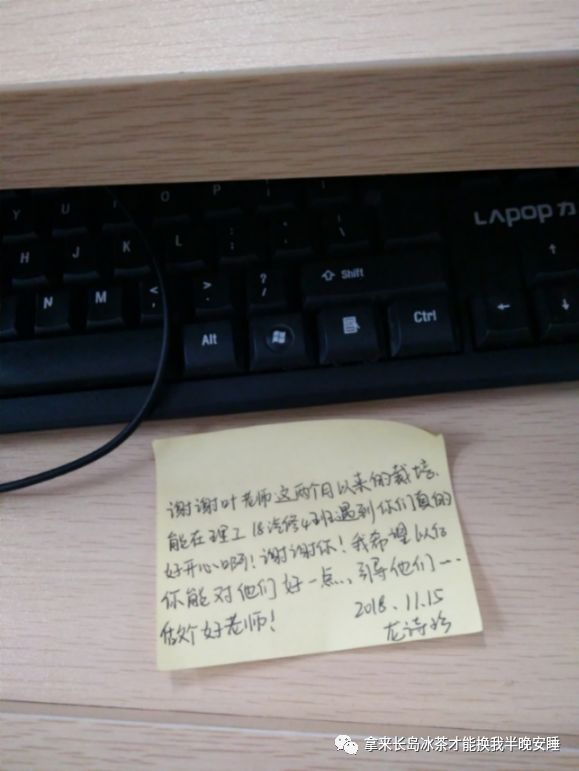 Y U I O P
H J K L : ;
N M < , > . ? / Shift
Alt Ctrl
LApop 力
谢谢叶老师这两个月以来的栽培、
能在理工18汽修4班遇到你们真的
好开心啊!谢谢你!我希望以后
你能对他们好一点、、引导他们…
做个好老师!
2018.11.15
龙诗
拿来长岛冰茶才能换我半晚安睡